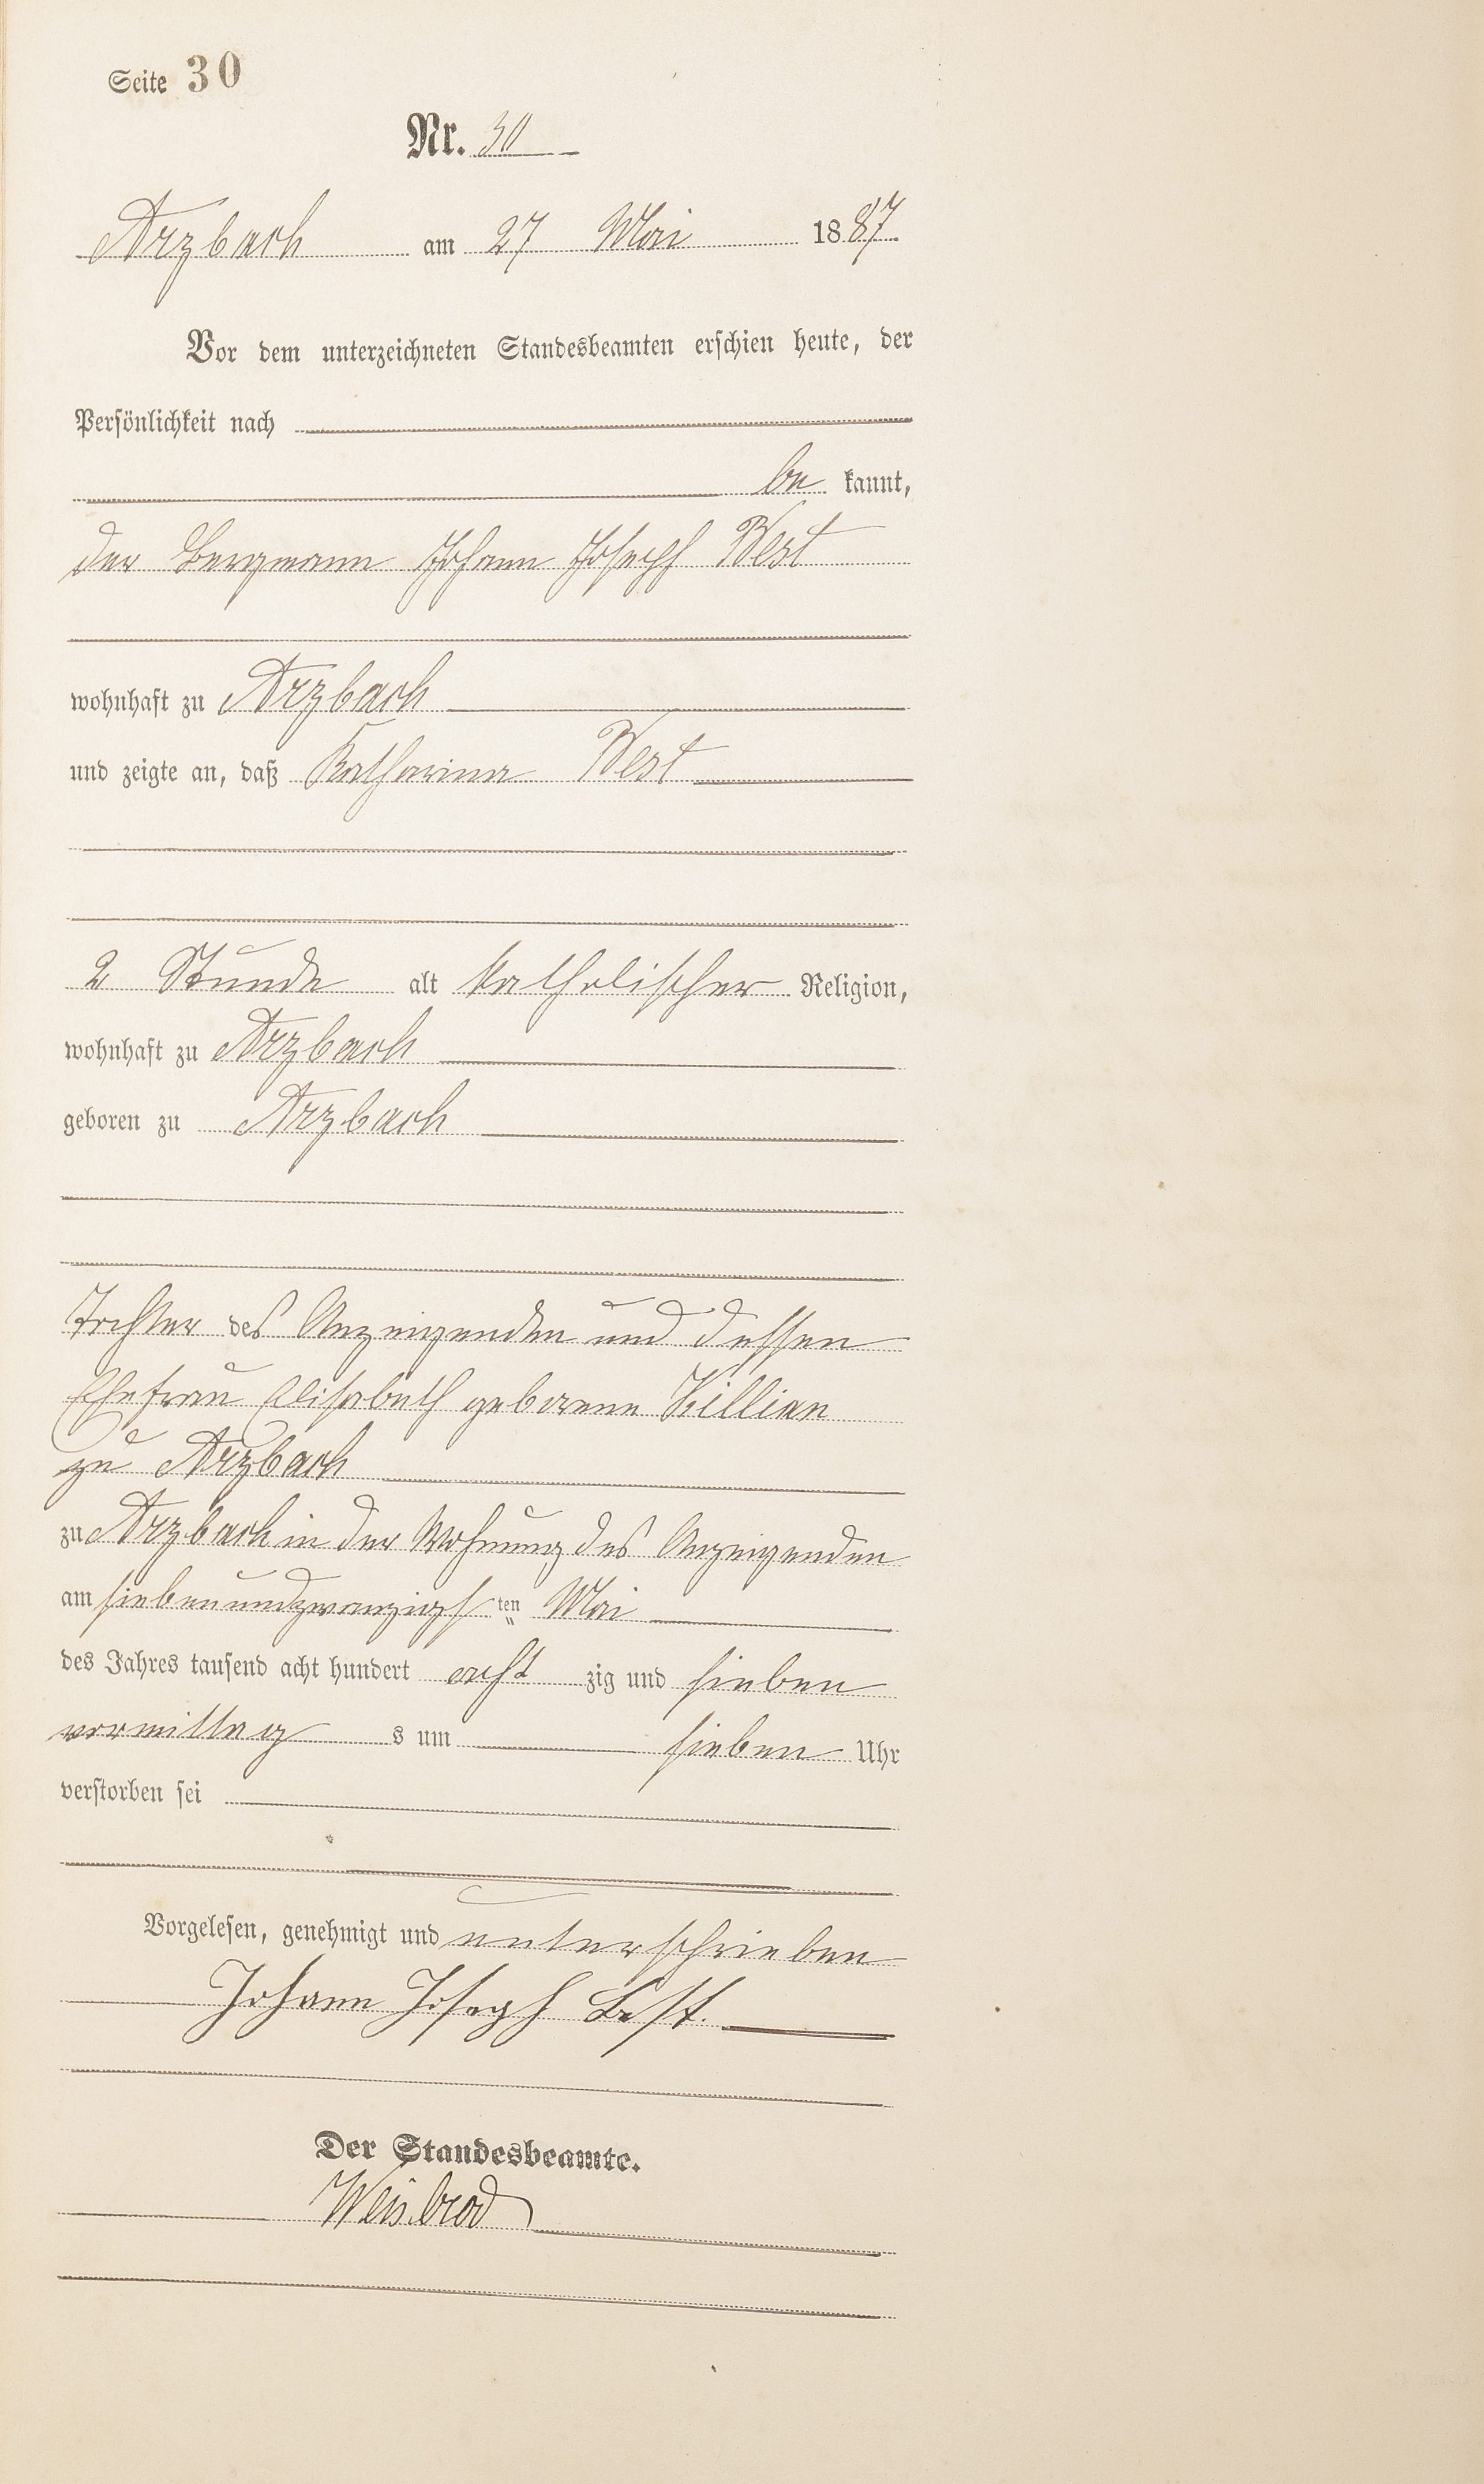 Seite 30
Nr. 30
Arzbach am 27 Mai 1887.
Vor dem unterzeichneten Standesbeamten erschien heute, der
Persönlichkeit nach
be kannt,
der Bergmann Johann Joseph Best
wohnhaft zu Arzbach
und zeigte an, daß Katharina Best
2 Stunde alt katholischer Religion,
wohnhaft zu Arzbach
geboren zu Arzbach
Tochter des Anzeigenden und dessen
Ehefrau Elisabeth geborene Killian
zu Arzbach
zu Arzbach in der Wohnung des Anzeigenden
am siebenundzwanzigsten Mai
des Jahres tausend acht hundert acht zig und sieben
vormittag s um sieben Uhr
verstorben sei
Vorgelesen, genehmigt und unterschrieben
Johann Joseph Best.
Der Standesbeamte.
Weisbrod